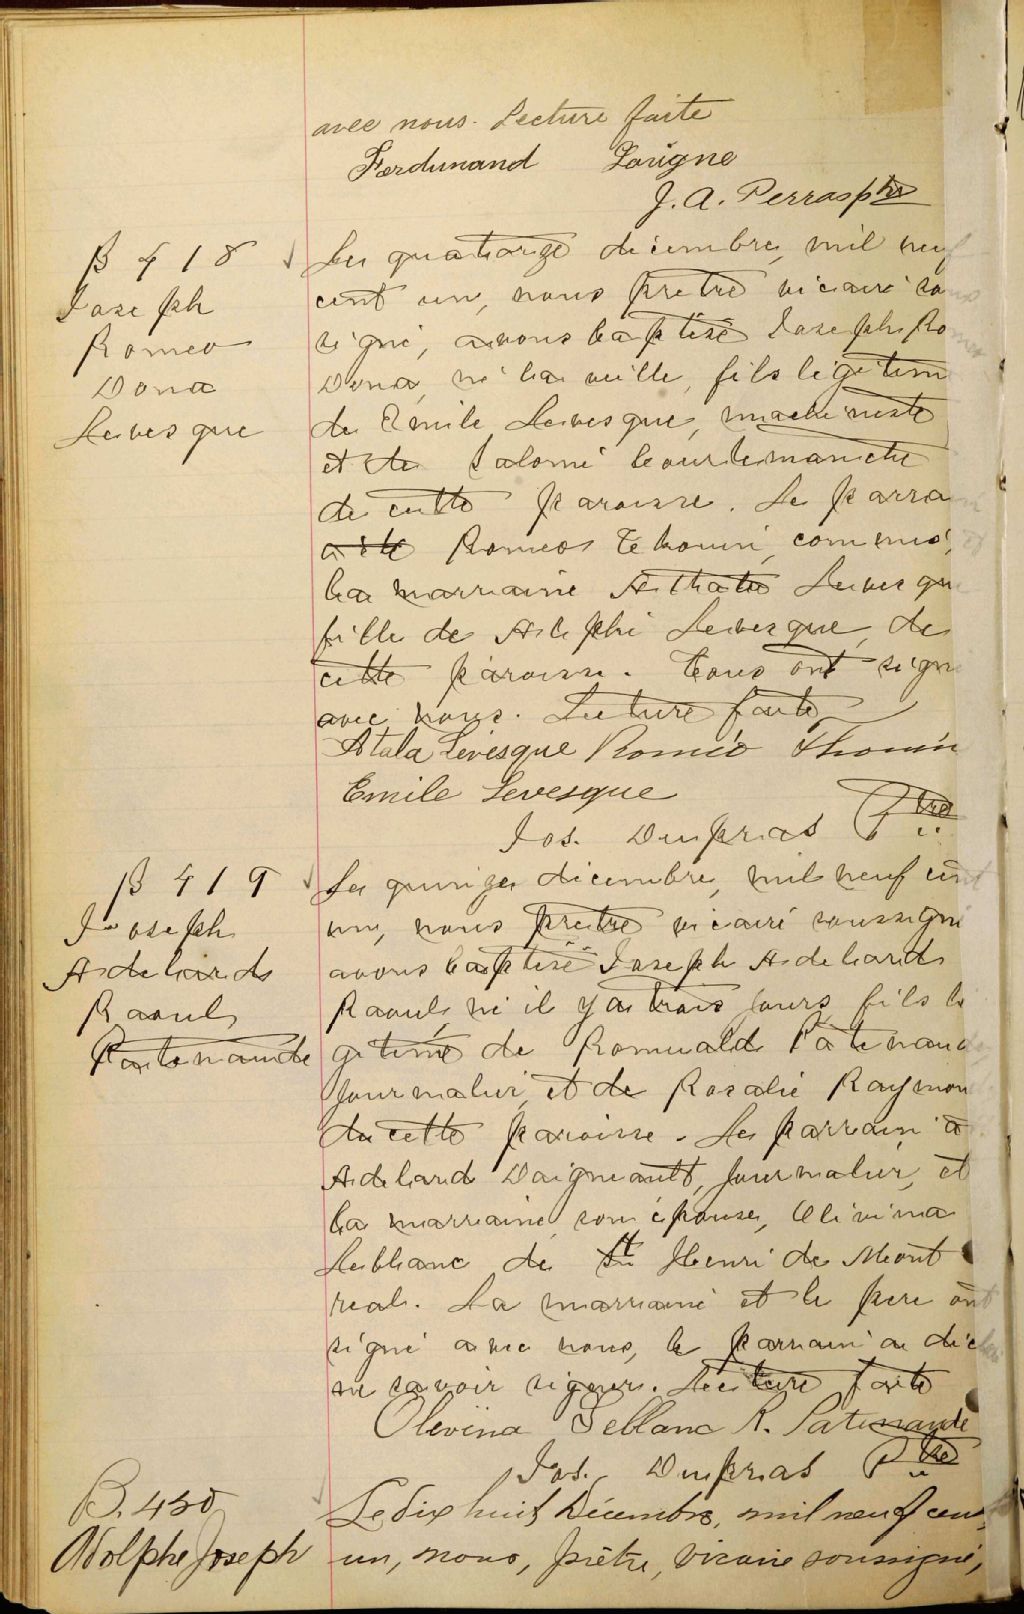 avec nous. Lecture faite
Ferdinand Lavigne
J. A. Perras ptre
B 418
Joseph
Romeo
Dona
Levesque
Le quatorze decembre, mil neuf
cent un, nous pretre vicaire sous
signé, avons baptisé Joseph Romeo
Dona, né la veille, fils légitime
de Emile Levesque, machiniste
et de Salomé Courtemanche
de cette paroisse. Le parrain
a été Romeo Thouin, commis, et
la marraine Athala Levesque
fille de Alephi Levesque, de
cette paroisse. Tous ont signé
avec nous. Lecture faite
Atala Lévesque Roméo Thouin
Emile Levesque
Jos. Dupras Ptre
B 419
Joseph
Adelard
Raoul
Patenaude
Le quinze decembre, mil neuf cent
un, nous pretre vicaire soussigné
avons baptisé Joseph Adelard
Raoul, né il y a trois jours, fils lé
gitime de Romuald Patenaude
journalier, et de Rosalie Raymond
de cette paroisse. Le parrain a
Adelard Daigneault, journalier, et
la marraine, son épouse, Olivina
Leblanc de St Henri de Mont
real. La marraine et le pere ont
signé avec nous, le parrain a déclaré
ne savoir signer. Lecture faite
Olivina Leblanc R. Patenaude
Jos. Dupras Ptre
B. 420
Adolphe Joseph
Le dix huit Décembre, mil neuf cent
un, nous, prêtre, vicaire soussigné,